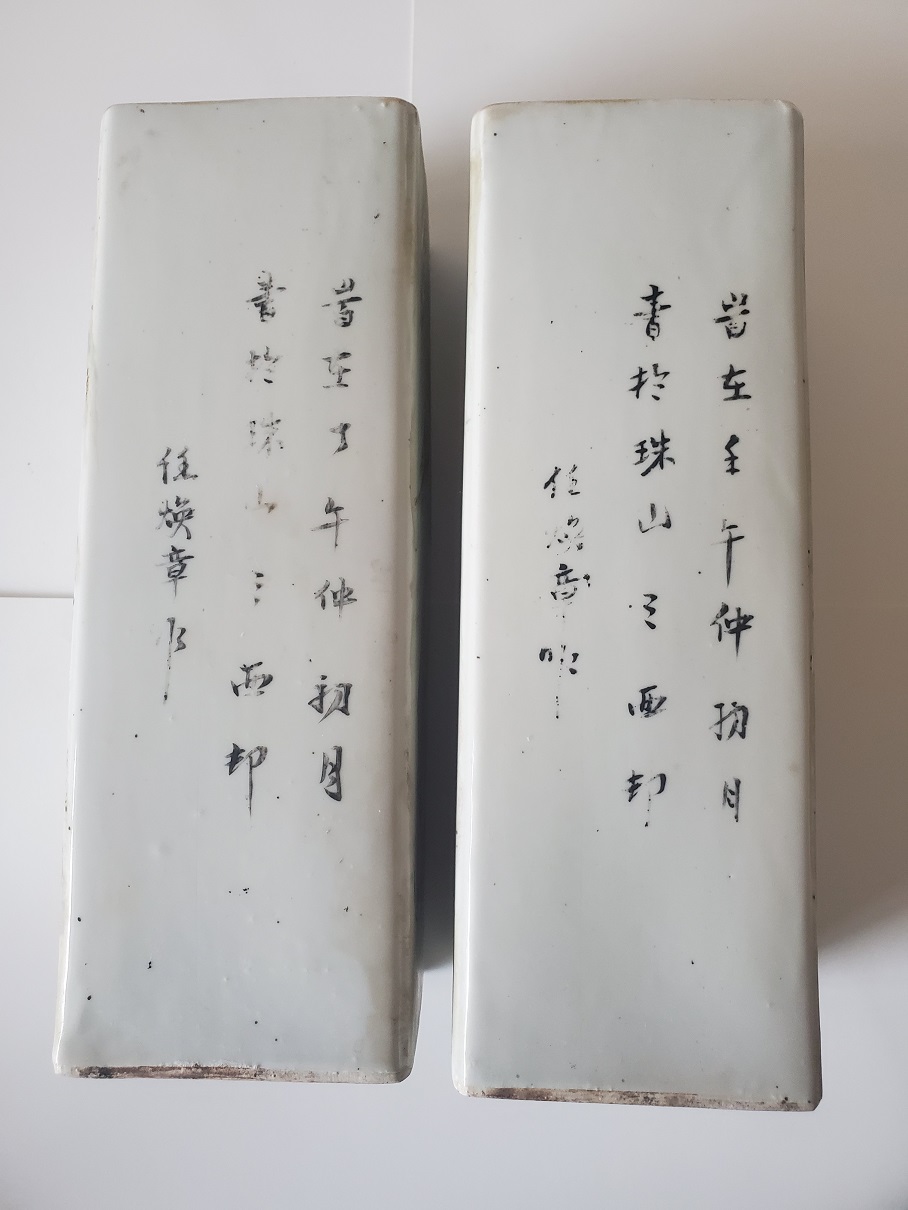 旹在壬午仲初月
書於珠山之西却
任煥章作
旹在午仲初月
書於珠山之西却
任煥章作